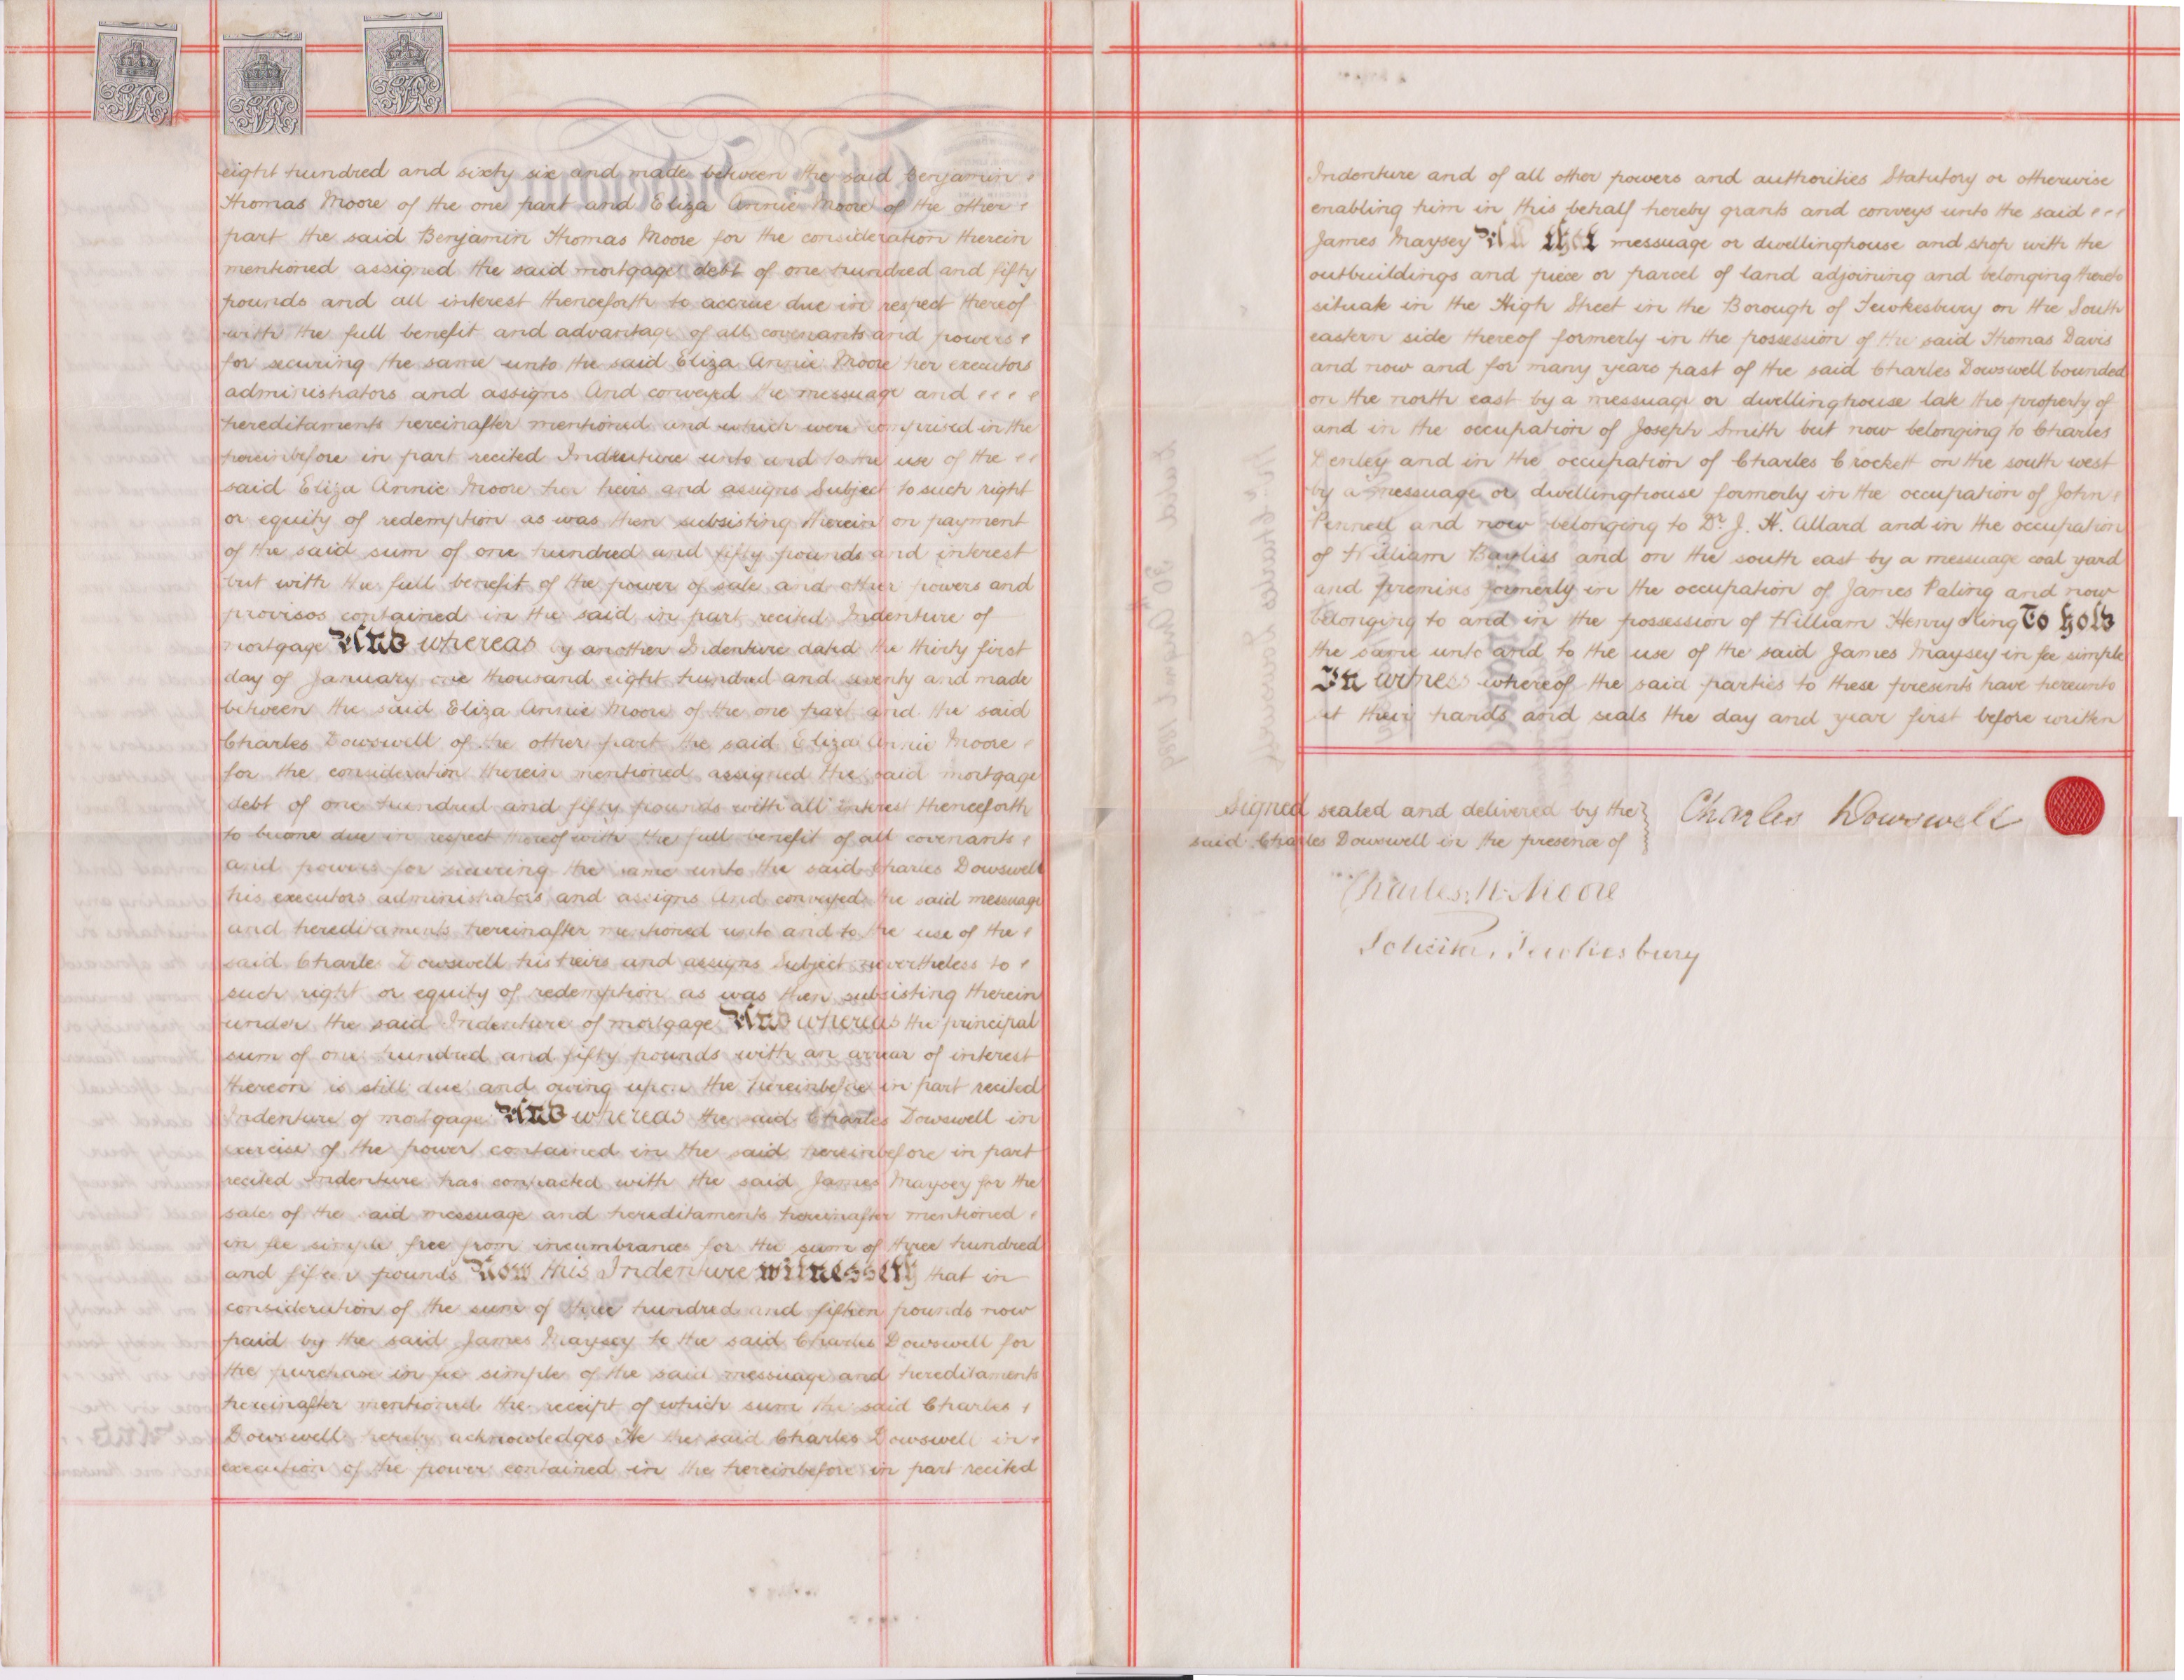 eight hundred and sixty six and made between the said Benjamin
Thomas Moore of the one part and Eliza Annie Moore of the other
part the said Benjamin Thomas Moore for the consideration therein
mentioned assigned the said mortgage debt of one hundred and fifty
pounds and all interest thenceforth to accrue due in respect thereof
with the full benefit and advantage of all covenants and powers
for securing the same unto the said Eliza Annie Moore her executors
administrators and assigns And conveyed the messuage and
hereditaments hereinafter mentioned and which were comprised in the
hereinbefore in part recited Indenture unto and to the use of the
said Eliza Annie Moore her heirs and assigns Subject to such right
or equity of redemption as was then subsisting therein on payment
of the said sum of one hundred and fifty pounds and interest
but with the full benefit of the power of sale and other powers and
provisos contained in the said in part recited Indenture of
mortgage And whereas by another Indenture dated the thirty first
day of January one thousand eight hundred and seventy and made
between the said Eliza Annie Moore of the one part and the said
Charles Dowswell of the other part the said Eliza Annie Moore
for the consideration therein mentioned assigned the said mortgage
debt of one hundred and fifty pounds with all interest thenceforth
to become due in respect thereof with the full benefit of all covenants
and powers for securing the same unto the said Charles Dowswell
his executors administrators and assigns And conveyed the said messuage
and hereditaments hereinafter mentioned unto and to the use of the
said Charles Dowswell his heirs and assigns Subject nevertheless to
such right or equity of redemption as was then subsisting therein
under the said Indenture of mortgage And whereas the principal
sum of one hundred and fifty pounds with an arrear of interest
thereon is still due and owing upon the hereinbefore in part recited
Indenture of mortgage And whereas the said Charles Dowswell in
exercise of the power contained in the said hereinbefore in part
recited Indenture has contracted with the said James Maysey for the
sale of the said messuage and hereditaments hereinafter mentioned
in fee simple free from incumbrances for the sum of three hundred
and fifteen pounds Now this Indenture witnesseth that in
consideration of the sum of three hundred and fifteen pounds now
paid by the said James Maysey to the said Charles Dowswell for
the purchase in fee simple of the said messuage and hereditaments
hereinafter mentioned the receipt of which sum the said Charles
Dowswell hereby acknowledges He the said Charles Dowswell in
execution of the power contained in the hereinbefore in part recited
Indenture and of all other powers and authorities Statutory or otherwise
enabling him in this behalf hereby grants and conveys unto the said
James Maysey All that messuage or dwellinghouse and shop with the
outbuildings and piece or parcel of land adjoining and belonging thereto
situate in the High Street in the Borough of Tewkesbury on the South
eastern side thereof formerly in the possession of the said Thomas Davis
and now and for many years past of the said Charles Dowswell bounded
on the north east by a messuage or dwellinghouse late the property of
and in the occupation of Joseph Smith but now belonging to Charles
and in the occupation of Charles Crockett on the south west
by a messuage or dwellinghouse formerly in the occupation of John
Pennell and now belonging to Dr. J. H. Allard and in the occupation
of William Bayliss and on the south east by a messuage coal yard
and premises formerly in the occupation of James Paling and now
belonging to and in the possession of William Henry King To hold
the same unto and to the use of the said James Maysey in fee simple
In witness whereof the said parties to these presents have hereunto
set their hands and seals the day and year first before written
Signed sealed and delivered by the
said Charles Dowswell in the presence of
Charles Dowswell
Charles H. Moore
Solicitor, Tewkesbury